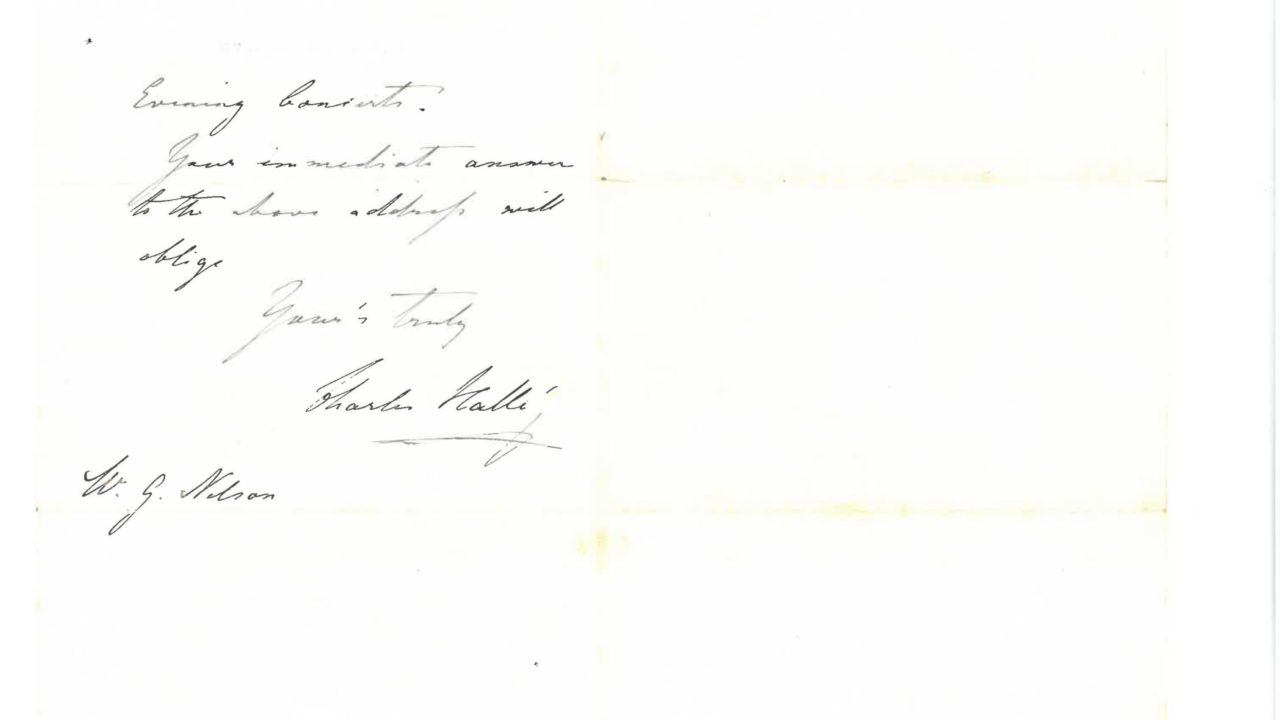 Evening Concerts.
Your immediate answer
to the above address will
oblige
Your's truly
Charles Hallé
W. G. Nelson